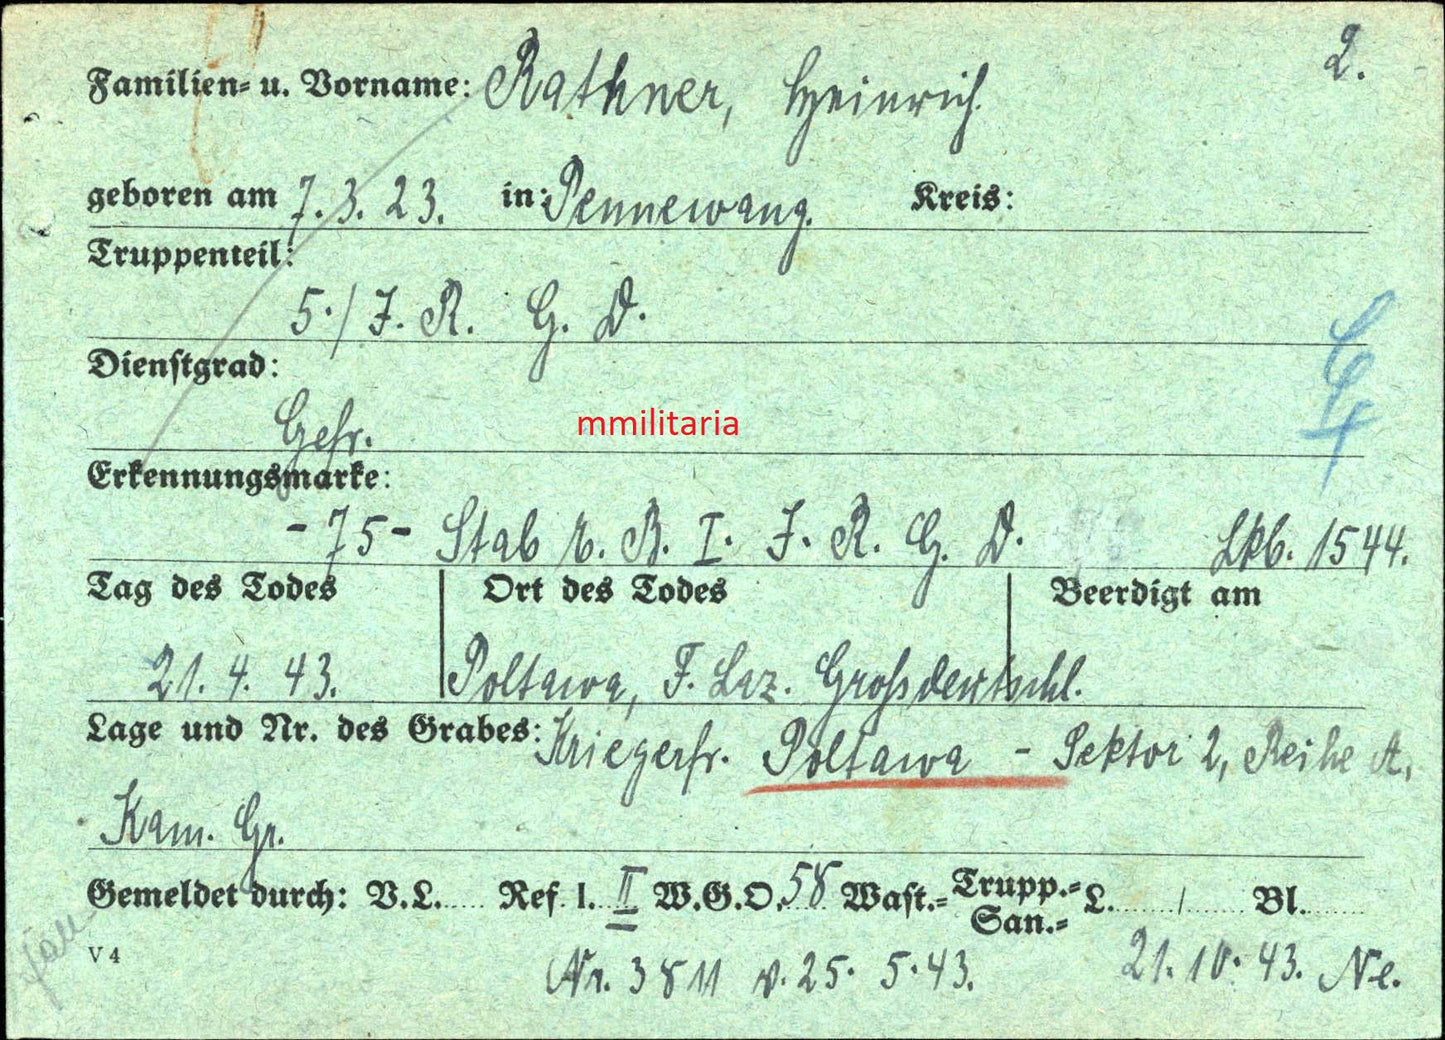 2.
Familien= u. Vorname: Rathner, Heinrich
geboren am 7.3.23. in: Pennewang. Kreis:
Truppenteil:
5./J. R. G. D.
Dienstgrad:
Gefr.
mmilitaria
Erkennungsmarke:
-75- Stab E. B. I. J. R. G. D. Lkb. 1544.
Tag des Todes Ort des Todes Beerdigt am
21. 4. 43. Poltawa, F. Laz. Grossdeutschl.
Lage und Nr. des Grabes: Kriegerfr. Poltawa - Sektor 2, Reihe A,
Kam. Gr.
Gemeldet durch: V.L. Ref. I. II W.G.O. 58 Wast.= Trupp.= San.= L. / Bl.
V 4
Nr. 3811 v. 25. 5. 43. 21. 10. 43. Ne.